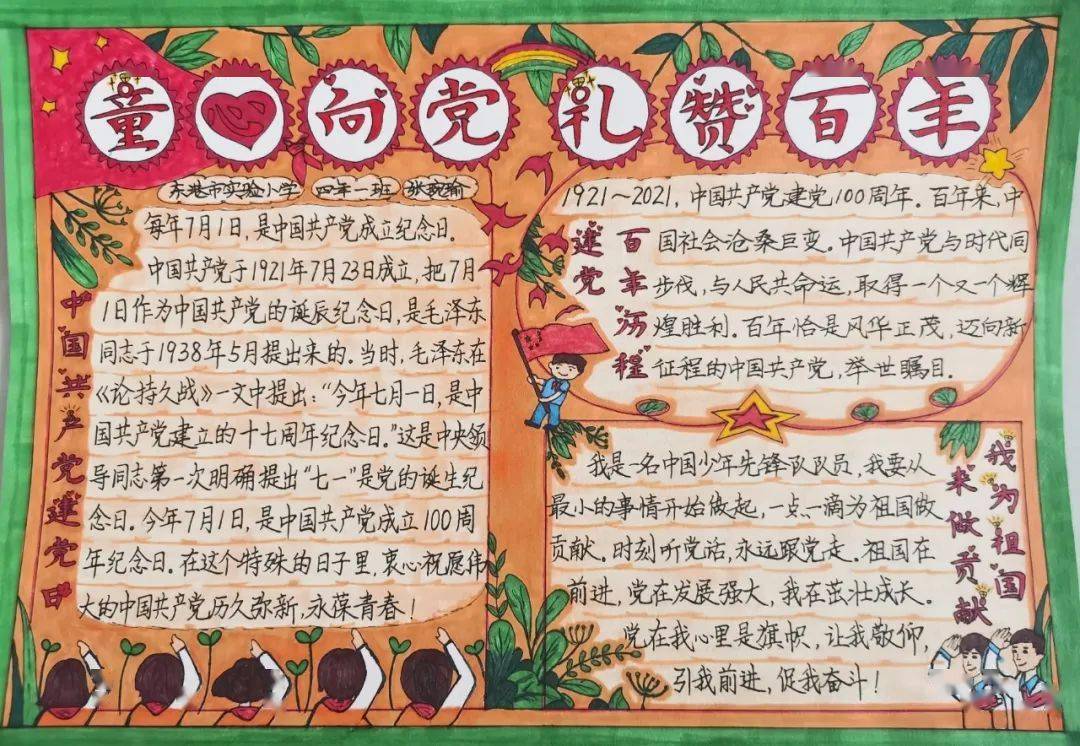 童心向党 礼赞百年
东港市实验小学 四年一班 张宛瑜
中国共产党建党日
每年7月1日,是中国共产党成立纪念日。
中国共产党于1921年7月23日成立,把7月
1日作为中国共产党的诞辰纪念日,是毛泽东
同志于1938年5月提出来的。当时,毛泽东在
《论持久战》一文中提出:“今年七月一日,是中
国共产党建立的十七周年纪念日。”这是中央领
导同志第一次明确提出“七一”是党的诞生纪
念日。今年7月1日,是中国共产党成立100周
年纪念日。在这个特殊的日子里,衷心祝愿伟
大的中国共产党历久弥新,永葆青春!
建党
百年历程
1921~2021,中国共产党建党100周年。百年来,中
国社会沧桑巨变。中国共产党与时代同
步伐,与人民共命运,取得一个又一个辉
煌胜利。百年恰是风华正茂,迈向新
征程的中国共产党,举世瞩目。
我为祖国
来做贡献
我是一名中国少年先锋队队员,我要从
最小的事情开始做起,一点一滴为祖国做
贡献。时刻听党话,永远跟党走。祖国在
前进,党在发展强大,我在茁壮成长。
党在我心里是旗帜,让我敬仰,
引我前进,促我奋斗!